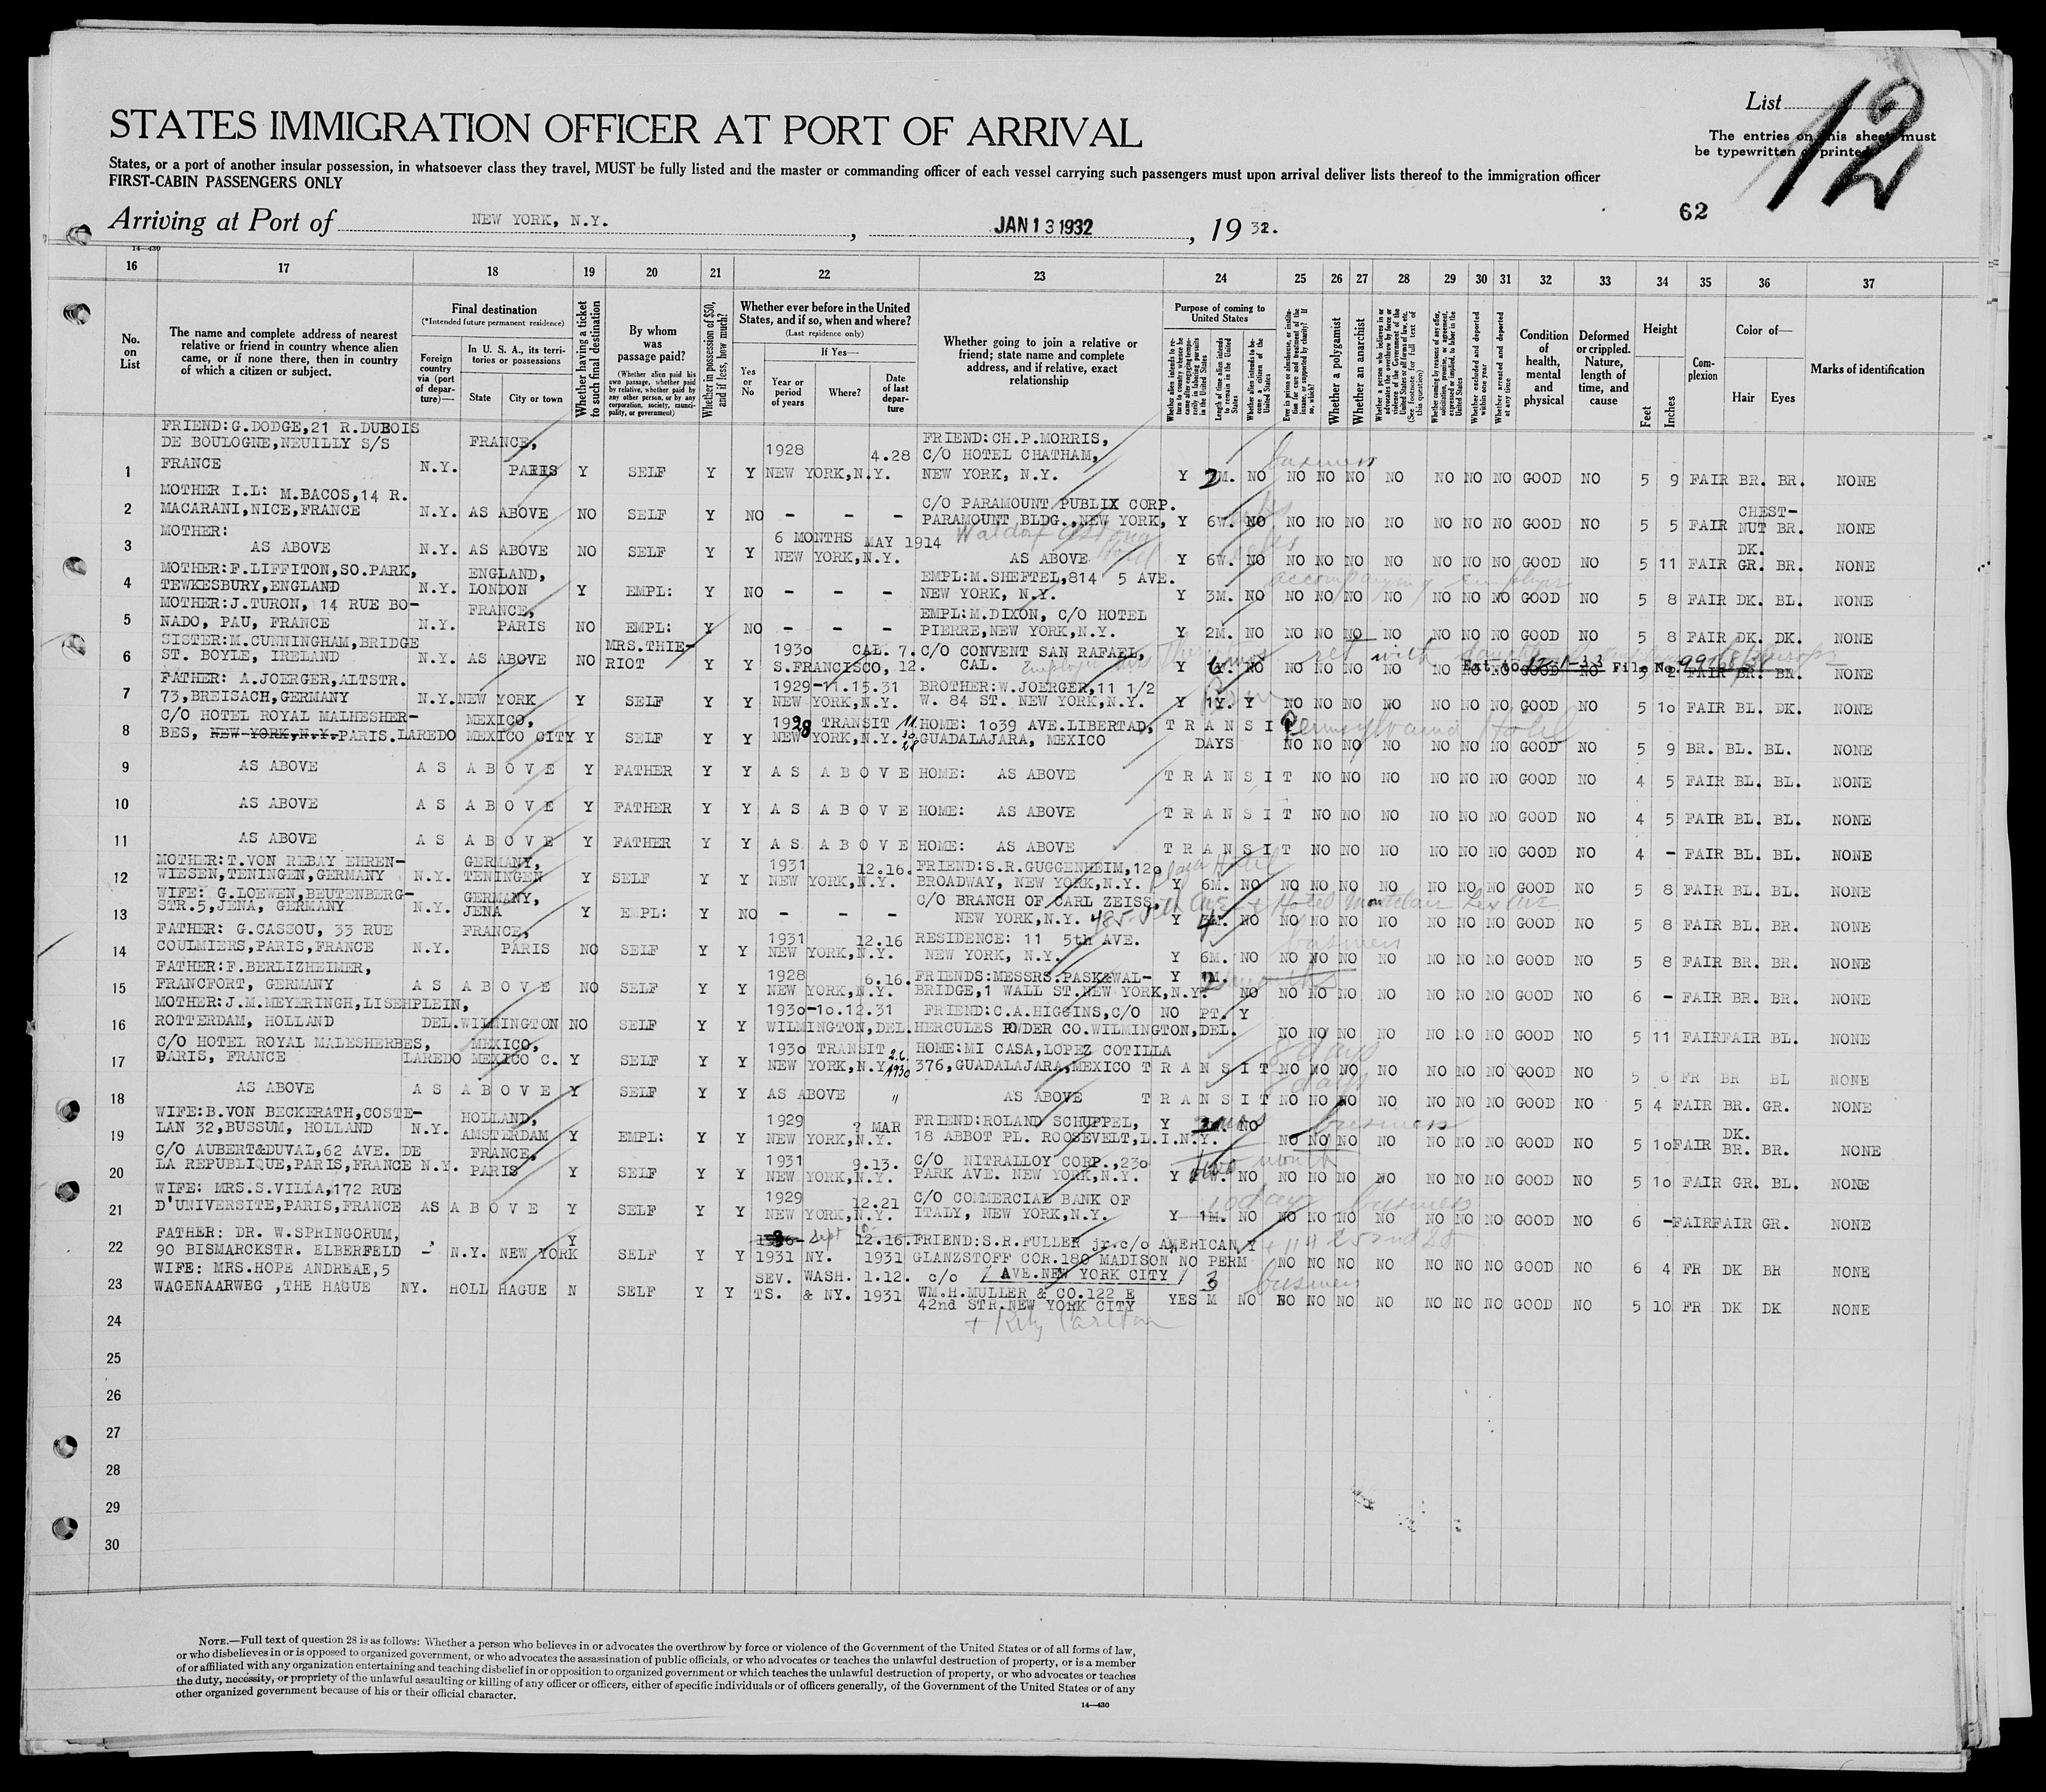 List 12
STATES IMMIGRATION OFFICER AT PORT OF ARRIVAL
The entries on this sheet must
be typewritten or printed
States, or a port of another insular possession, in whatsoever class they travel, MUST be fully listed and the master or commanding officer of each vessel carrying such passengers must upon arrival deliver lists thereof to the immigration officer
FIRST-CABIN PASSENGERS ONLY
62
Arriving at Port of NEW YORK, N.Y. , JAN 13 1932 , 1932.
14—430
16 17 18 19 20 21 22 23 24 25 26 27 28 29 30 31 32 33 34 35 36 37
No. on List
The name and complete address of nearest relative or friend in country whence alien came, or if none there, then in country of which a citizen or subject.
Final destination
(*Intended future permanent residence)
Foreign country via (port of departure)—
In U. S. A., its territories or possessions
State
City or town
Whether having a ticket to such final destination
By whom was passage paid?
(Whether alien paid his own passage, whether paid by relative, whether paid by any other person, or by any corporation, society, municipality, or government)
Whether in possession of $50, and if less, how much?
Whether ever before in the United States, and if so, when and where?
(Last residence only)
Yes or No
If Yes—
Year or period of years
Where?
Date of last departure
Whether going to join a relative or friend; state name and complete address, and if relative, exact relationship
Purpose of coming to United States
Whether alien intends to return to country whence he came after engaging temporarily in laboring pursuits in the United States
Length of time alien intends to remain in the United States
Whether alien intends to become a citizen of the United States
Ever in prison or almshouse, or institution for care and treatment of the insane, or supported by charity? If so, which?
Whether a polygamist
Whether an anarchist
Whether a person who believes in or advocates the overthrow by force or violence of the Government of the United States or all forms of law, etc. (See footnote for full text of this question)
Whether coming by reason of any offer, solicitation, promise, or agreement, expressed or implied, to labor in the United States
Whether excluded and deported within one year
Whether arrested and deported at any time
Condition of health, mental and physical
Deformed or crippled. Nature, length of time, and cause
Height
Feet
Inches
Complexion
Color of—
Hair
Eyes
Marks of identification
FRIEND:G.DODGE,21 R.DUBOIS
DE BOULOGNE,NEUILLY S/S FRANCE, 1928 4.28 FRIEND:CH.P.MORRIS, C/O HOTEL CHATHAM, business
1 FRANCE N.Y. PARIS Y SELF Y Y NEW YORK,N.Y. NEW YORK, N.Y. Y 2M. NO NO NO NO NO NO NO NO GOOD NO 5 9 FAIR BR. BR. NONE
MOTHER I.L: M.BACOS,14 R. C/O PARAMOUNT PUBLIX CORP. CHEST-
2 MACARANI,NICE,FRANCE N.Y. AS ABOVE NO SELF Y NO - - - PARAMOUNT BLDG.,NEW YORK, Y 6W. NO NO NO NO NO NO NO NO GOOD NO 5 5 FAIR NUT BR. NONE
MOTHER: 6 MONTHS MAY 1914 Waldorf Astoria Hotel DK.
3 AS ABOVE N.Y. AS ABOVE NO SELF Y Y NEW YORK,N.Y. AS ABOVE Y 6W. NO NO NO NO NO NO NO NO GOOD NO 5 11 FAIR GR. BR. NONE
MOTHER:F.LIFFITON,SO.PARK, ENGLAND, EMPL:M.SHEFTEL,814 5 AVE. accompanying employer
4 TEWKESBURY,ENGLAND N.Y. LONDON Y EMPL: Y NO - - - NEW YORK, N.Y. Y 3M. NO NO NO NO NO NO NO NO GOOD NO 5 8 FAIR DK. BL. NONE
MOTHER:J.TURON, 14 RUE BO- FRANCE, EMPL:M.DIXON, C/O HOTEL
5 NADO, PAU, FRANCE N.Y. PARIS NO EMPL: Y NO - - - PIERRE,NEW YORK,N.Y. Y 2M. NO NO NO NO NO NO NO NO GOOD NO 5 8 FAIR DK. DK. NONE
SISTER:M.CUNNINGHAM,BRIDGE MRS.THIE- 1930 CAL. 7. C/O CONVENT SAN RAFAEL, ret with Ext. to 12-1-33 File No.
6 ST. BOYLE, IRELAND N.Y. AS ABOVE NO RIOT Y Y S.FRANCISCO, 12. CAL. Employer Mrs Theriot Y 6 NO NO NO NO NO NO NO NO GOOD NO 5 2 FAIR BR. BR. NONE
FATHER: A.JOERGER,ALTSTR. 1929-11.15.31 BROTHER:W.JOERGER,11 1/2
7 73,BREISACH,GERMANY N.Y. NEW YORK Y SELF Y Y NEW YORK,N.Y. W. 84 ST. NEW YORK,N.Y. Y 1Y. Y NO NO NO NO NO NO NO GOOD NO 5 10 FAIR BL. DK. NONE
C/O HOTEL ROYAL MALHESHER- MEXICO, 1928 TRANSIT HOME: 1039 AVE.LIBERTAD, TRANSIT Pennsylvania Hotel
8 BES, NEW YORK,N.Y.PARIS. LAREDO MEXICO CITY Y SELF Y Y NEW YORK,N.Y. GUADALAJARA, MEXICO DAYS NO NO NO NO NO NO NO GOOD NO 5 9 BR. BL. BL. NONE
9 AS ABOVE AS ABOVE Y FATHER Y Y AS ABOVE HOME: AS ABOVE TRANSIT NO NO NO NO NO NO GOOD NO 4 5 FAIR BL. BL. NONE
10 AS ABOVE AS ABOVE Y FATHER Y Y AS ABOVE HOME: AS ABOVE TRANSIT NO NO NO NO NO NO GOOD NO 4 5 FAIR BL. BL. NONE
11 AS ABOVE AS ABOVE Y FATHER Y Y AS ABOVE HOME: AS ABOVE TRANSIT NO NO NO NO NO NO GOOD NO 4 - FAIR BL. BL. NONE
MOTHER:T.VON REBAY EHREN- GERMANY, 1931 12.16. FRIEND:S.R.GUGGENHEIM,120 Plaza Hotel
12 WIESEN,TENINGEN,GERMANY N.Y. TENINGEN Y SELF Y Y NEW YORK,N.Y. BROADWAY, NEW YORK,N.Y. Y 6M. NO NO NO NO NO NO NO NO GOOD NO 5 8 FAIR BL. BL. NONE
WIFE: G.LOEWEN,BEUTENBERG- GERMANY, C/O BRANCH OF CARL ZEISS, 485 5th Ave + Hotel Montclair Lex Ave
13 STR.5,JENA, GERMANY N.Y. JENA Y EMPL: Y NO - - - NEW YORK,N.Y. Y 4M. NO NO NO NO NO NO NO NO GOOD NO 5 8 FAIR BL. BR. NONE
FATHER: G.CASSOU, 33 RUE FRANCE, 1931 12.16 RESIDENCE: 11 5th AVE. business
14 COULMIERS,PARIS,FRANCE N.Y. PARIS NO SELF Y Y NEW YORK,N.Y. NEW YORK, N.Y. Y 6M. NO NO NO NO NO NO NO NO GOOD NO 5 8 FAIR BR. BR. NONE
FATHER:F.BERLIZHEIMER, 1928 6.16. FRIENDS:MESSRS.PASK&WAL- Y 2M. months
15 FRANCFORT, GERMANY AS ABOVE NO SELF Y Y NEW YORK,N.Y. BRIDGE,1 WALL ST.NEW YORK,N.Y. NO NO NO NO NO NO NO NO GOOD NO 6 - FAIR BR. BR. NONE
MOTHER:J.M.MEYERINGH,LISEHPLEIN, 1930-10.12.31 FRIEND:C.A.HIGGINS,C/O NO PT. Y
16 ROTTERDAM, HOLLAND DEL. WILMINGTON NO SELF Y Y WILMINGTON,DEL. HERCULES POWDER CO.WILMINGTON,DEL. NO NO NO NO NO NO NO GOOD NO 5 11 FAIR FAIR BL. NONE
C/O HOTEL ROYAL MALESHERBES, MEXICO, 1930 TRANSIT 2.6. 1930 HOME:MI CASA,LOPEZ COTILLA 8 days
17 PARIS, FRANCE LAREDO MEXICO C. Y SELF Y Y NEW YORK,N.Y. 376,GUADALAJARA,MEXICO TRANSIT NO NO NO NO NO NO NO GOOD NO 5 6 FR BR BL NONE
8 days
18 AS ABOVE AS ABOVE Y SELF Y Y AS ABOVE " AS ABOVE TRANSIT NO NO NO NO NO NO NO GOOD NO 5 4 FAIR BR. GR. NONE
WIFE:B.VON BECKERATH,COSTE- HOLLAND, 1929 ? MAR FRIEND:ROLAND SCHUPPEL, Y mos NO business DK.
19 LAN 32,BUSSUM, HOLLAND N.Y. AMSTERDAM Y EMPL: Y Y NEW YORK,N.Y. 18 ABBOT PL. ROOSEVELT,L.I.N.Y. NO NO NO NO NO NO NO GOOD NO 5 10 FAIR BR. BR. NONE
C/O AUBERT&DUVAL,62 AVE. DE FRANCE, 1931 9.13. C/O NITRALLOY CORP.,230 two month
20 LA REPUBLIQUE,PARIS,FRANCE N.Y. PARIS Y SELF Y Y NEW YORK,N.Y. PARK AVE. NEW YORK,N.Y. Y NO NO NO NO NO NO NO NO GOOD NO 5 10 FAIR GR. BL. NONE
WIFE: MRS.S.VILIA,172 RUE 1929 12.21 C/O COMMERCIAL BANK OF 10 days business
21 D'UNIVERSITE,PARIS,FRANCE AS ABOVE Y SELF Y Y NEW YORK,N.Y. ITALY, NEW YORK,N.Y. Y 1M. NO NO NO NO NO NO NO NO GOOD NO 6 - FAIR FAIR GR. NONE
FATHER: DR. W.SPRINGORUM, Y Sept 12.16. FRIEND:S.R.FULLER jr.c/o AMERICAN Y
22 90 BISMARCKSTR. ELBERFELD - N.Y. NEW YORK SELF Y Y 1931 NY. 1931 GLANZSTOFF COR.180 MADISON NO PERM NO NO NO NO NO NO NO GOOD NO 6 4 FR DK BR NONE
WIFE: MRS.HOPE ANDREAE,5 SEV. WASH. 1.12. c/o / AVE.NEW YORK CITY / 3 business
23 WAGENAARWEG ,THE HAGUE NY. HOLL HAGUE N SELF Y Y TS. & NY. 1931 WM.H.MULLER & CO.122 E 42nd STR.NEW YORK CITY YES M NO NO NO NO NO NO NO NO GOOD NO 5 10 FR DK DK NONE
24 + Ritz Carlton
25
26
27
28
29
30
NOTE.—Full text of question 28 is as follows: Whether a person who believes in or advocates the overthrow by force or violence of the Government of the United States or of all forms of law,
or who disbelieves in or is opposed to organized government, or who advocates the assassination of public officials, or who advocates or teaches the unlawful destruction of property, or is a member
of or affiliated with any organization entertaining and teaching disbelief in or opposition to organized government or which teaches the unlawful destruction of property, or who advocates or teaches
the duty, necessity, or propriety of the unlawful assaulting or killing of any officer or officers, either of specific individuals or of officers generally, of the Government of the United States or of any
other organized government because of his or their official character.
14—430